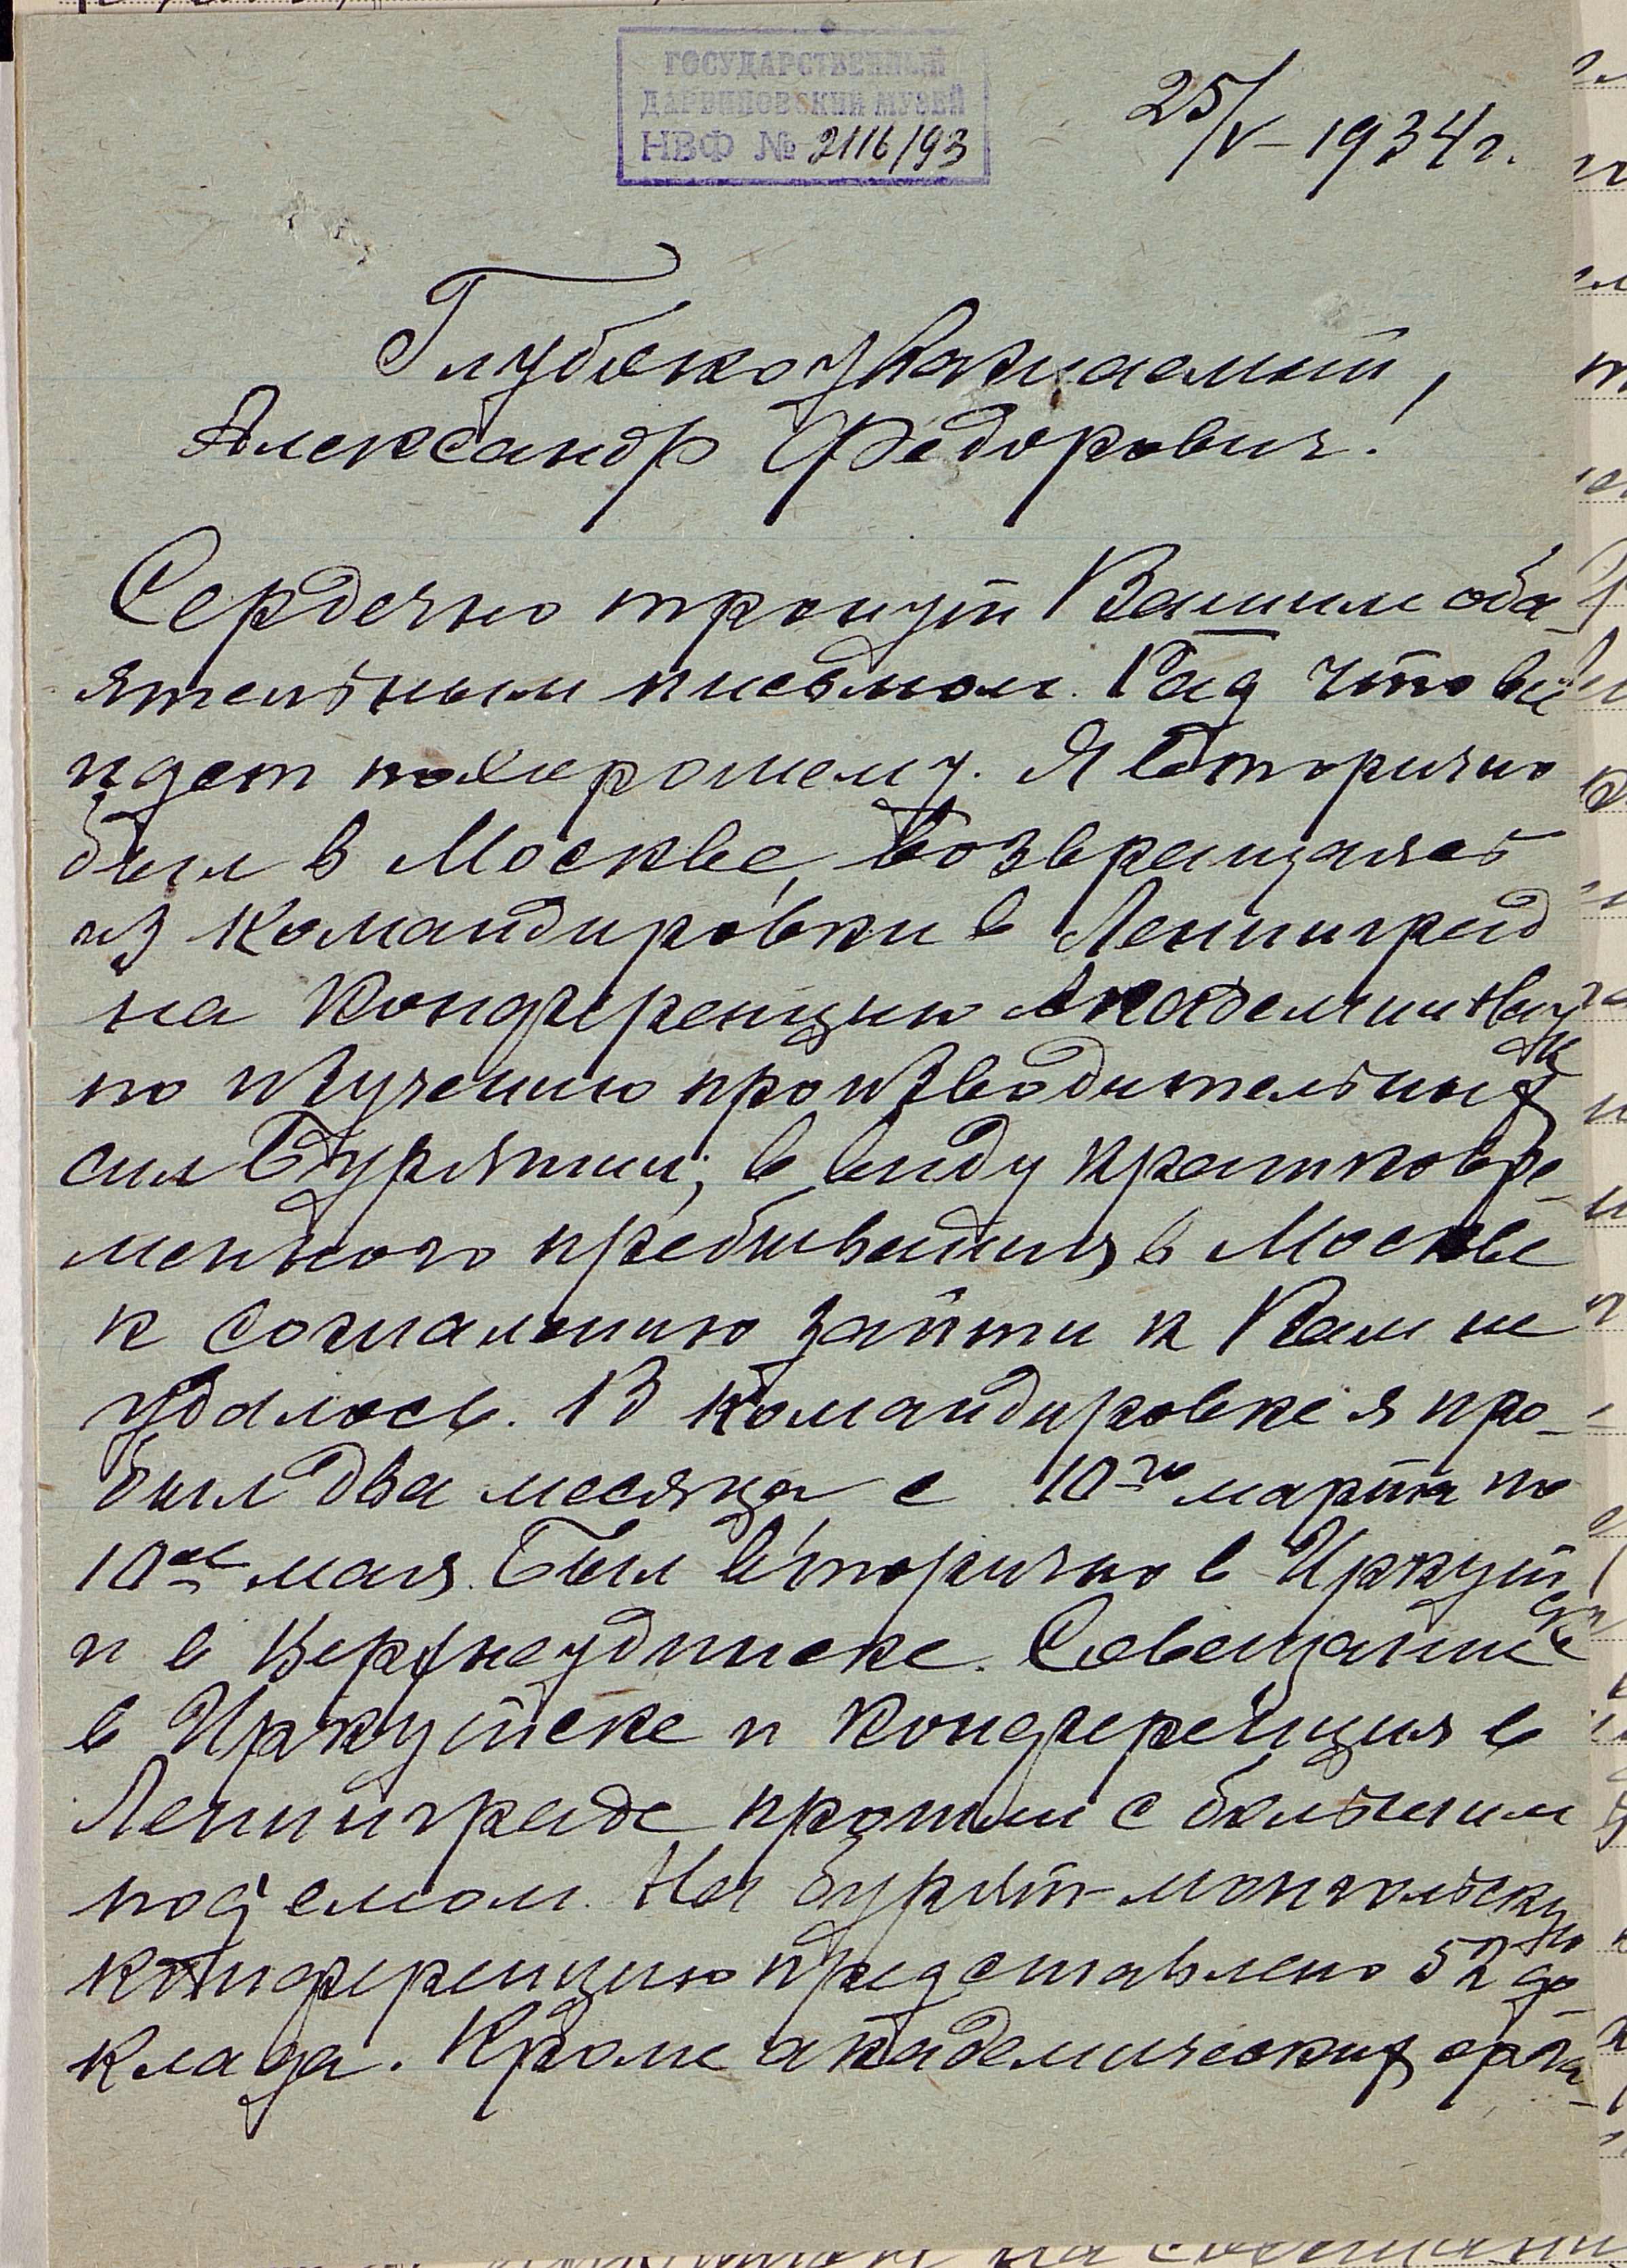 ГОСУДАРСТВЕННЫЙ
ДАРВИНОВСКИЙ МУЗЕЙ
НВФ № 2116/93
25/V–1934г.
Глубокоуважаемый,
Александр Федорович!
Сердечно тронут Вашим оба-
ятельным письмом. Рад что все
идет похорошему. Я вторично
был в Москве, возвращаясь
из командировки в Ленинград
на Конференцию Академии Наук
по изучению производительных
сил Бурятии; в виду кратковре-
менного пребывания в Москве
к сожалению зайти к Вам не
удалось. В командировке я про-
был два месяца с 10го марта по
10ое мая. Был вторично в Иркутске
и в Верхнеудинске. Совещание
в Иркутске и конференция в
Ленинграде прошли с большим
под'емом. На бурят-монгольскую
конференцию представлено 52 до-
клада. Кроме академических орга-